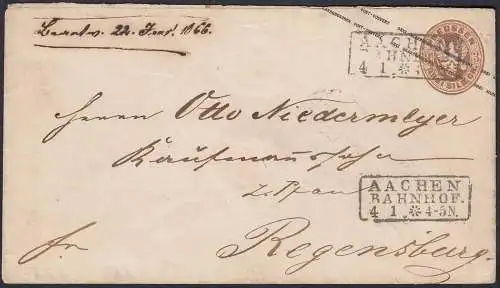 Beantw. 22. Jan. 1866.
AACHEN
BAHNHOF
4 1.
Herrn Otto Niedermeyer
Kaufmannssohn
AACHEN
BAHNHOF.
4 1. ✻ 4-5N.
fr
Regensburg.